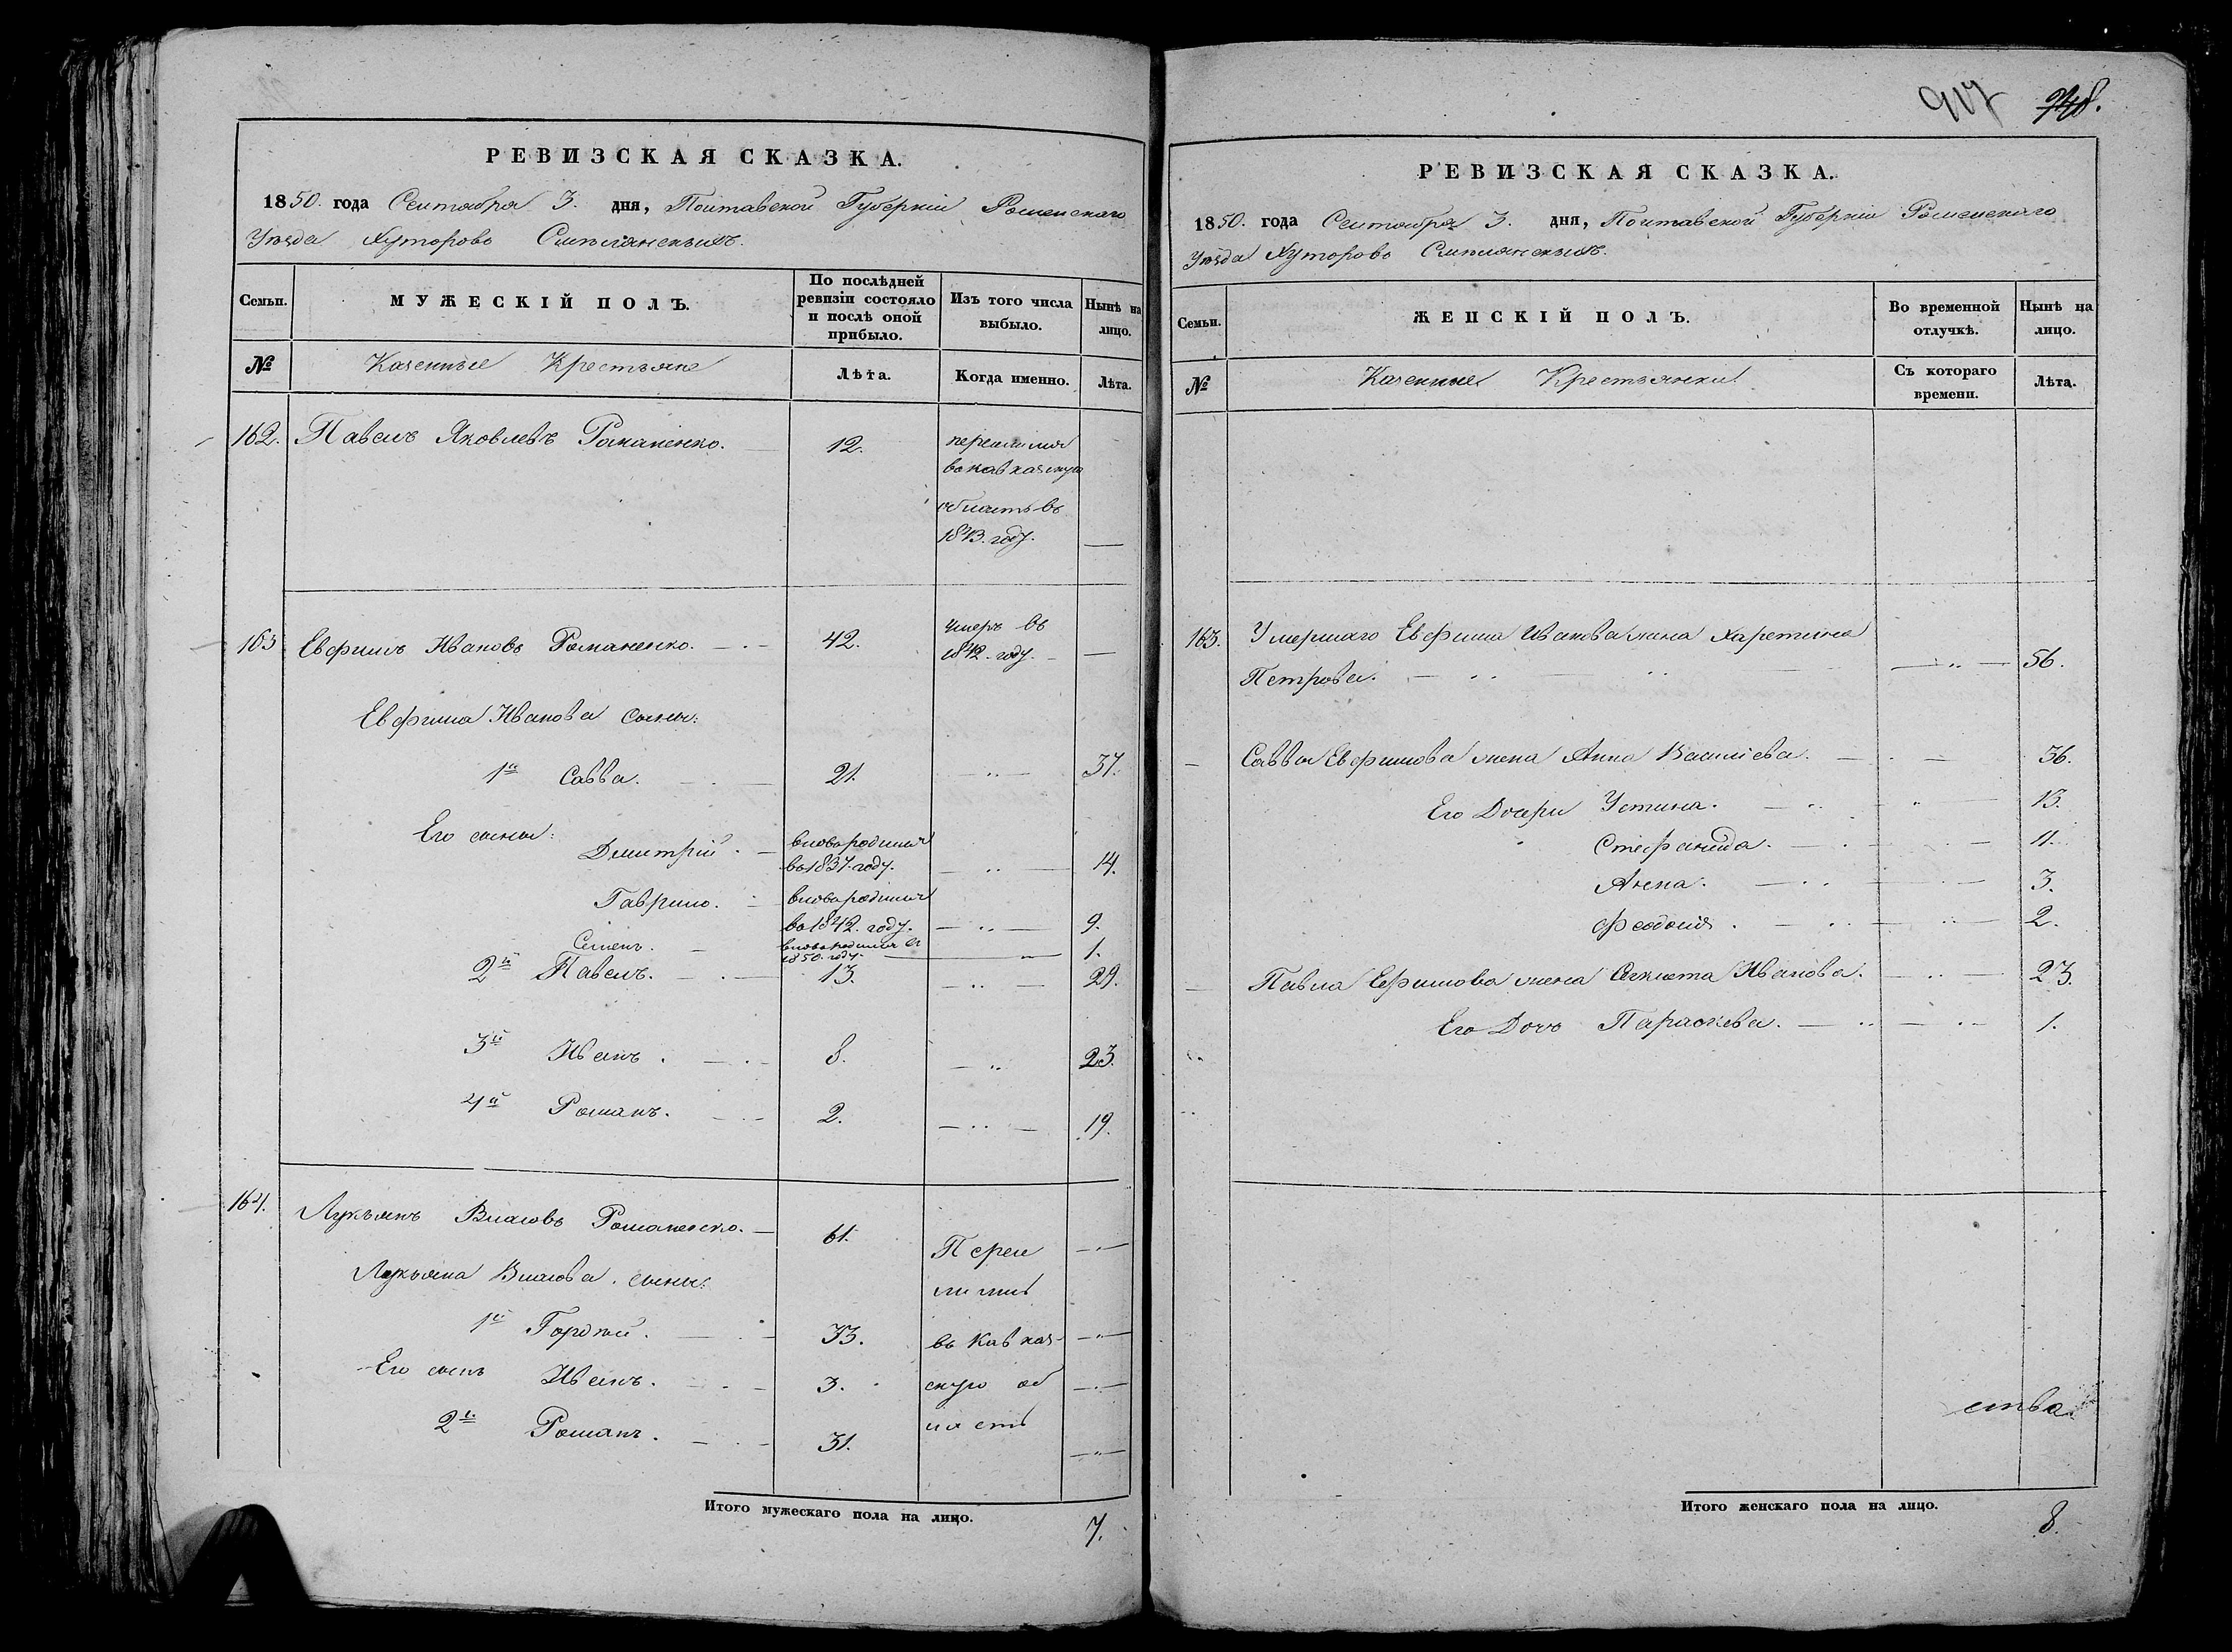 РЕВИЗСКАЯ СКАЗКА.
1850. года Сентября 3. дня, Полтавской Губерніи Роменскаго
Уѣзда Хуторовъ
Семьи.
МУЖЕСКІЙ ПОЛЪ.
По послѣдней ревизіи состояло и послѣ оной прибыло.
Изъ того числа выбыло.
Нынѣ на лицо.
№
Казенные Крестьяне
Лѣта.
Когда именно.
Лѣта.
162. Павелъ Яковлевъ Романенко. 12. переселился
въ кавказскую
область въ
1843. году. —
163 Евфимъ Ивановъ Романенко. 42. умеръ въ
1842. году. —
Евфима Иванова сыны:
1й Савва. 21. 37.
Его сыны:
Дмитрій. вновьродился
въ 1837. году. 14.
Гаврило. вновьродился
въ 1842. году. 9.
Семенъ. вновьродился въ
1850. году. 1.
2й Павелъ. 13. 29.
3й Иванъ. 8. 23.
4й Романъ. 2. 19.
164. Лукьянъ Власовъ Романенко. 61. Пересе
лились
Лукьяна Власова сыны:
1й Гордѣй. 33. въ Кавказ-
Его сынъ Иванъ. 3. скую об
2й Романъ. 31. ласть
Итого мужескаго пола на лицо. 7.
917 748.
РЕВИЗСКАЯ СКАЗКА.
1850. года Сентября 3. дня, Полтавской Губерніи Роменскаго
Уѣзда Хуторовъ
Семьи.
ЖЕНСКІЙ ПОЛЪ.
Во временной отлучкѣ.
Нынѣ на лицо.
№
Казенные Крестьянки
Съ котораго времени.
Лѣта.
163. Умершаго Евфима Иванова жена Харетина
Петрова. 56.
Саввы Евфимова жена Анна Василіева. 36.
Его Дочери Устина. 13.
Стефанида. 11.
Анна. 3.
Феодосія. 2.
Павла Ефимова жена Иванова. 23.
Его Дочь Параскева. 1.
ства
Итого женскаго пола на лицо. 8.